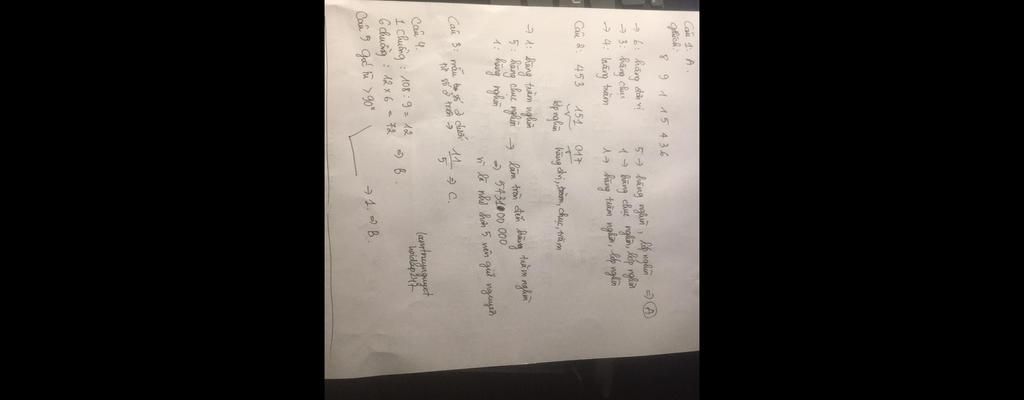 Câu 1: A.
Giải thích:
8 9 1 1 5 4 3 6
→ 6: hàng đơn vị
→ 3: hàng chục
→ 4: hàng trăm
5 → hàng nghìn, lớp nghìn
1 → hàng chục nghìn, lớp nghìn
1 → hàng trăm nghìn, lớp nghìn
⇒ A
Câu 2: 453 151 017
lớp nghìn hàng đvị, chục, trăm
→ 1: hàng trăm nghìn
5: hàng chục nghìn → làm tròn đến hàng trăm nghìn
1: hàng nghìn ⇒ 5731000 000
vì là nhỏ hơn 5 nên giữ nguyên
Câu 3: mẫu số ở dưới
tử số ở trên → 11/5 ⇒ C.
Câu 4:
1 chuồng : 108 : 9 = 12
6 chuồng : 12 x 6 = 72 ⇒ B.
lamtnuynguyet
hoidap247
Câu 5 góc tù > 90° → 1. ⇒ B.